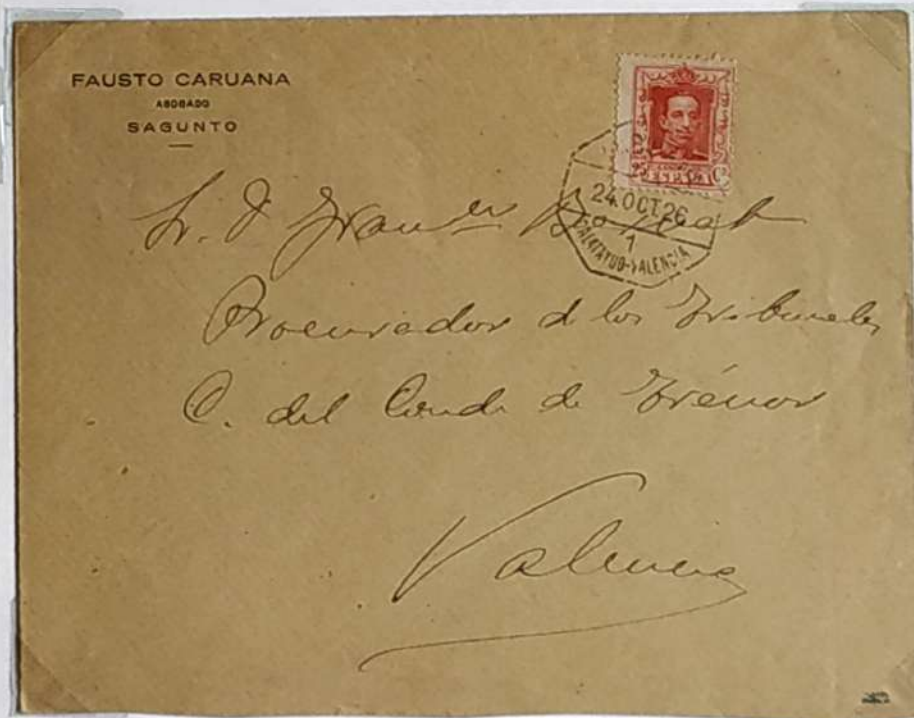 FAUSTO CARUANA
ABOGADO
SAGUNTO
ESPAÑA
24.OCT.26
1
CALATAYUD-VALENCIA
Sr. D. Fran.co
Procurador d los Tribunales
C. del Conde de Trénor
Valencia